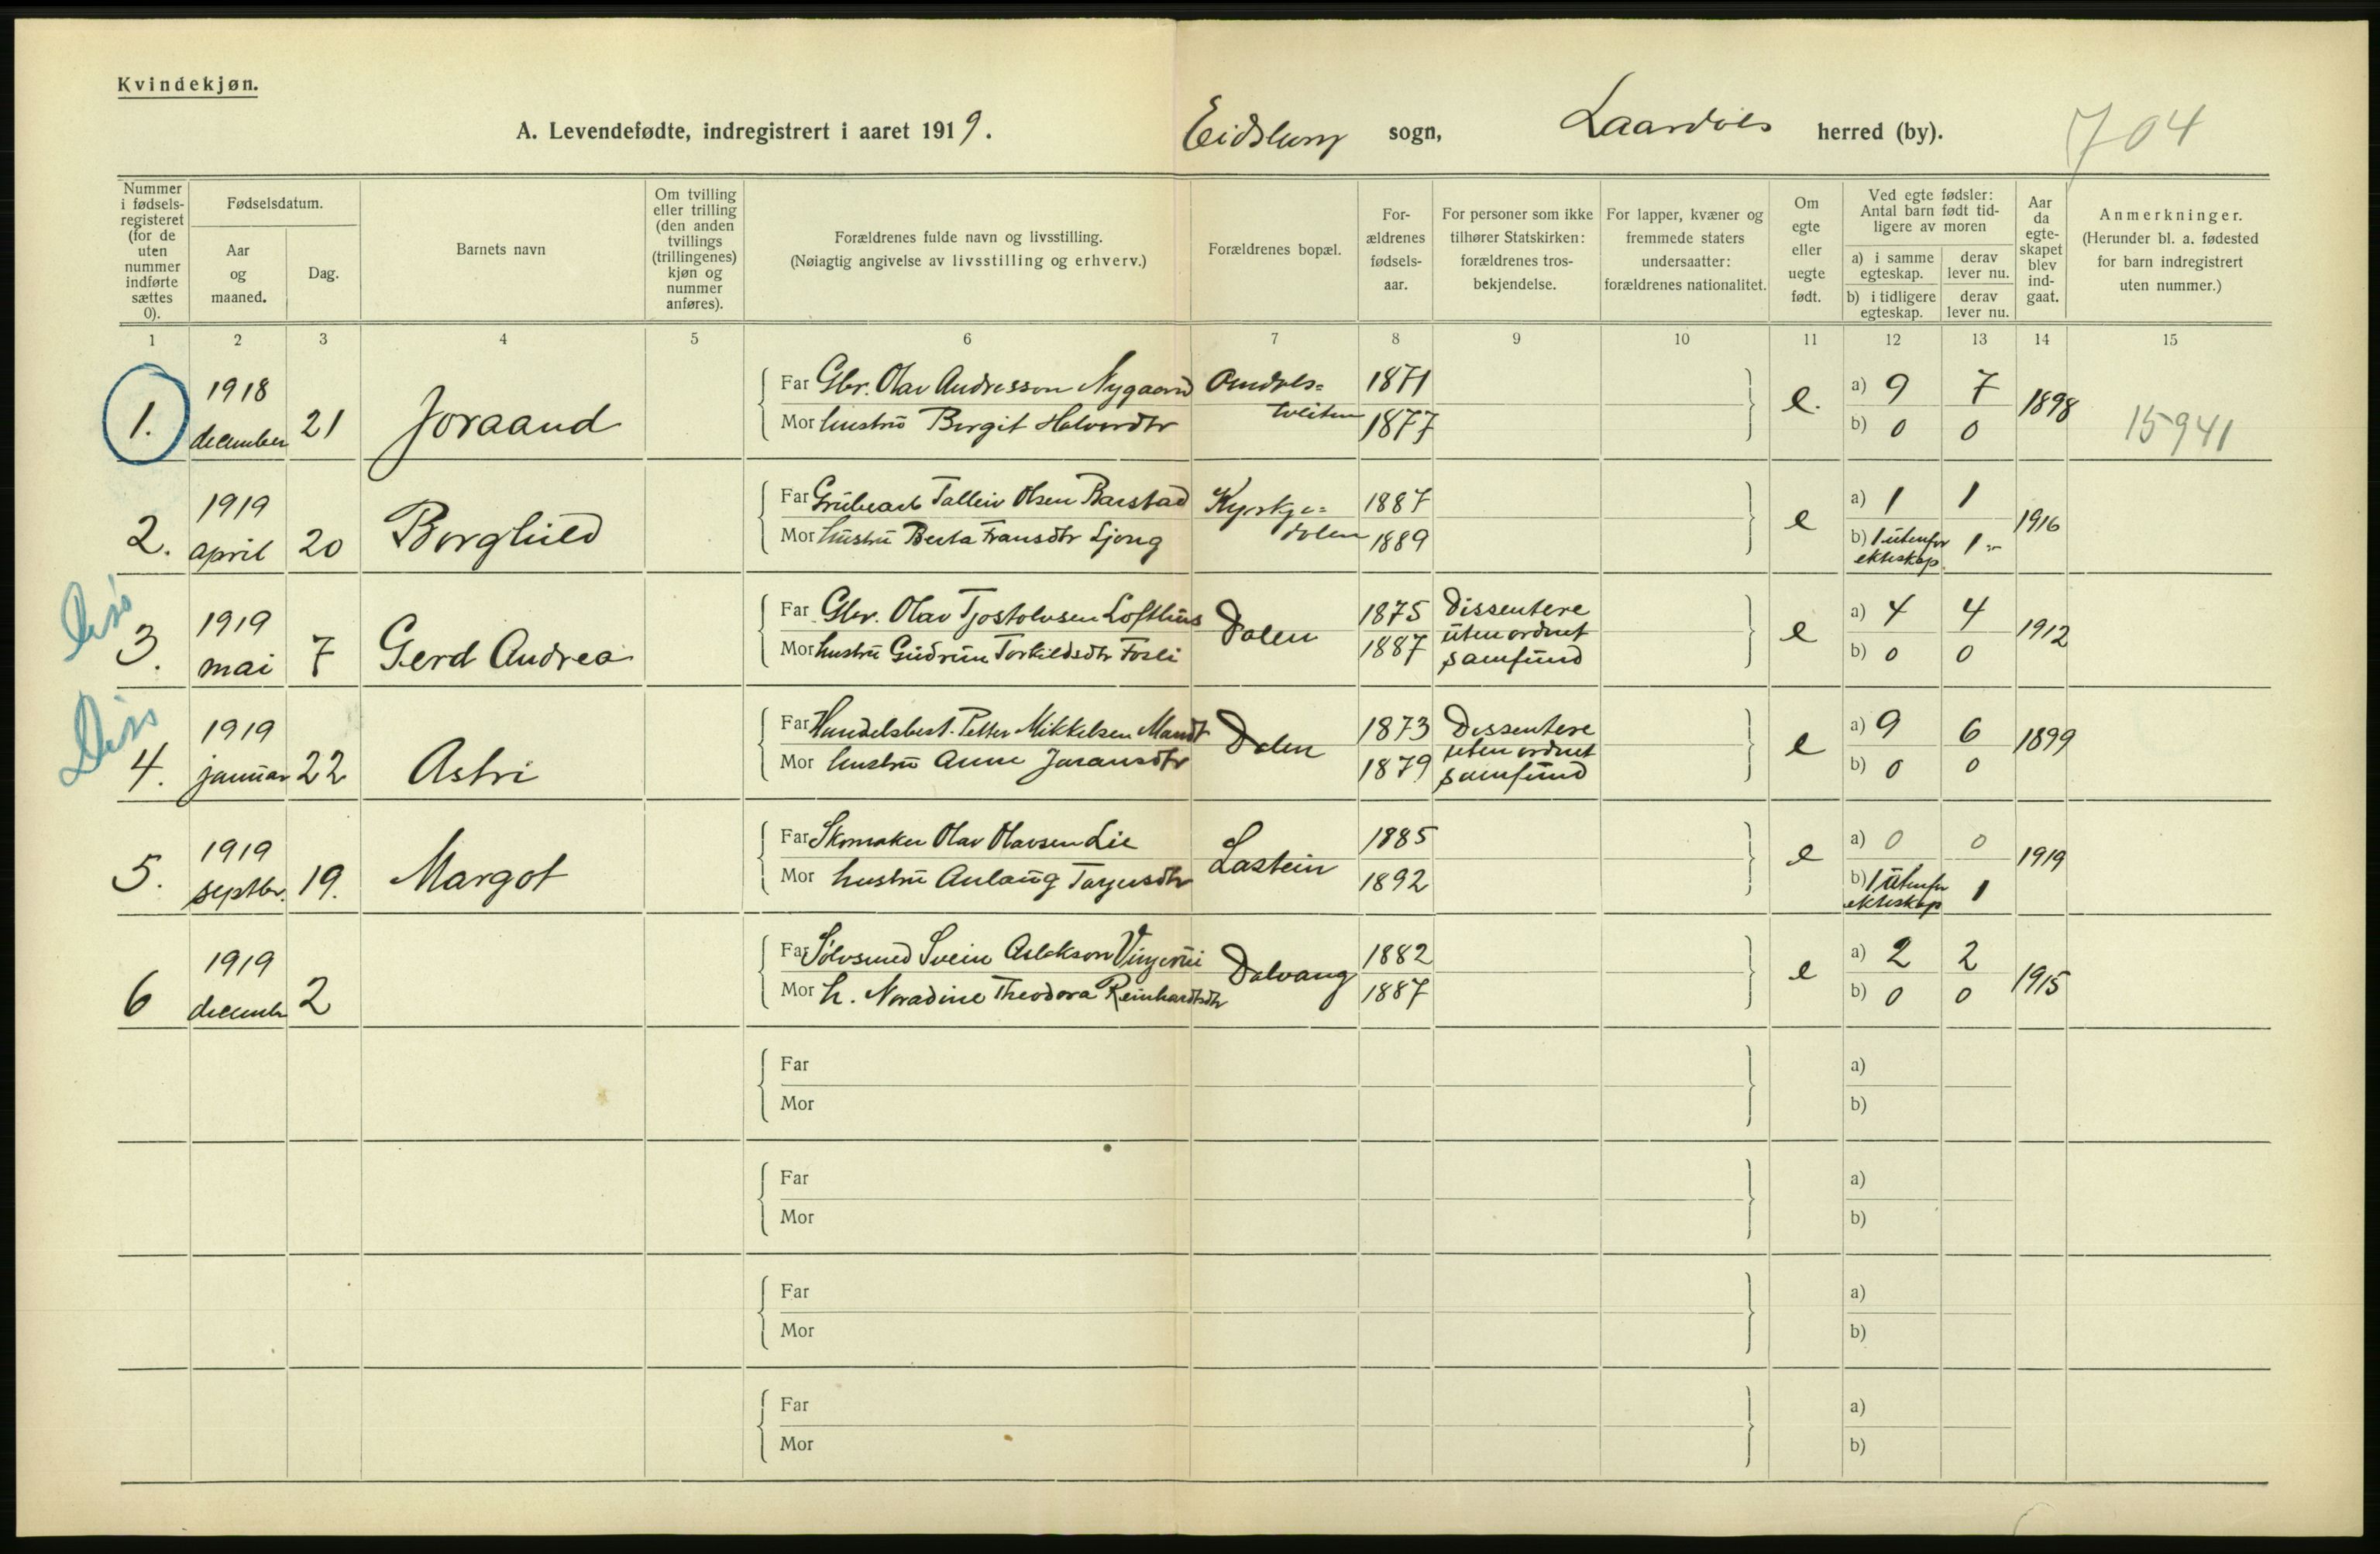 Kvindekjøn.
A. Levendefødte, indregistrert i aaret 1919. Eidsborg sogn, Laardals herred (by). 704
Nummer i fødsels-registeret (for de uten nummer indførte sættes 0).
Fødselsdatum.
Aar og maaned.
Dag.
Barnets navn
Om tvilling eller trilling (den anden tvillings (trillingenes) kjøn og nummer anføres).
Forældrenes fulde navn og livsstilling.
(Nøiagtig angivelse av livsstilling og erhverv.)
Forældrenes bopæl.
For-ældrenes fødsels-aar.
For personer som ikke tilhører Statskirken: forældrenes tros-bekjendelse.
For lapper, kvæner og fremmede staters undersaatter: forældrenes nationalitet.
Om egte eller uegte født.
Ved egte fødsler: Antal barn født tid-ligere av moren
a) i samme egteskap.
derav lever nu.
b) i tidligere egteskap.
derav lever nu.
Aar da egte-skapet blev ind-gaat.
Anmerkninger.
(Herunder bl. a. fødested for barn indregistrert uten nummer.)
1 2 3 4 5 6 7 8 9 10 11 12 13 14 15
1. 1918 december 21 Joraand
Far Gbr. Olav Andresson Nygaard Omdals= 1871
Mor hustru Bergit Halvordtr tveiten 1877
e. a) 9 7 b) 0 0 1898 15941
2. 1919 april 20 Borghild
Far Grubearb Talleiv Olsen Barstad Kyrkje= 1887
Mor hustru Berta Fransdtr Ljong dalen 1889
e a) 1 1 b) 1 utenfor ekteskap. 1 1916
Diss
3. 1919 mai 7 Gerd Andrea
Far Gbr. Olav Tjostolvsen Lofthus Dalen 1875
Mor hustru Gudrun Torkildsdtr Fosli 1887
Dissentere uten ordnet samfund
e a) 4 4 b) 0 0 1912
Diss
4. 1919 januar 22 Astri
Far Handelsbest. Petter Mikkelsen Mandt Dalen 1873
Mor hustru Anne Jøransdtr 1879
Dissentere uten ordnet samfund
e a) 9 6 b) 0 0 1899
5. 1919 septbr. 19. Margot
Far Skomaker Olav Olavsen Lie Lastein 1885
Mor hustru Aslaug Tarjeisdtr 1892
e a) 0 0 b) 1 utenfor ekteskap 1 1919
6 1919 decemb 2
Far Sølvsmed Svein Aslakson Vingerui Dalvang 1882
Mor h. Noradine Theodora Reinhardtsdtr 1887
e a) 2 2 b) 0 0 1915
Far a)
Mor b)
Far a)
Mor b)
Far a)
Mor b)
Far a)
Mor b)